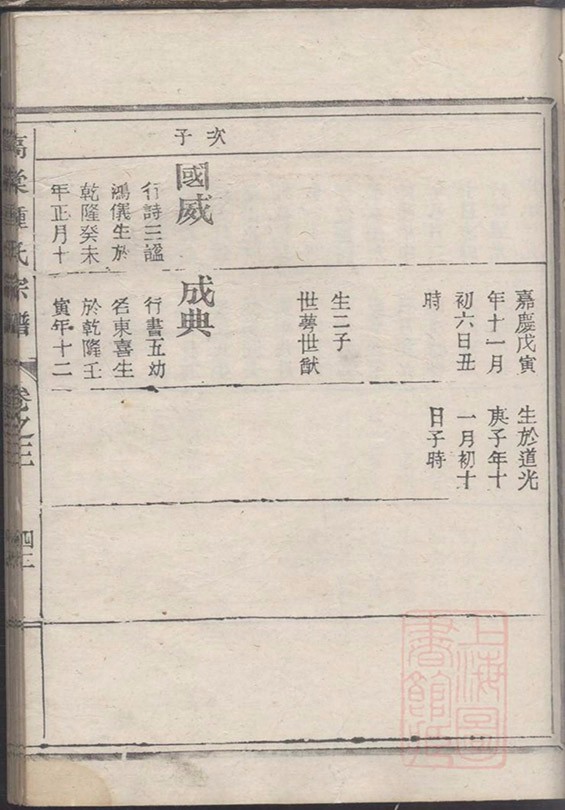 嘉慶戊寅
年十一月
初六日丑
時
生二子
世蕚世猷
生於道光
庚子年十
一月初十
日子時
次子
國威
行詩三諡
鴻儀生於
乾隆癸未
年正月十
成典
行書五幼
名東喜生
於乾隆壬
寅年十二
鍾氏宗譜
卷之三
上海圖書館藏